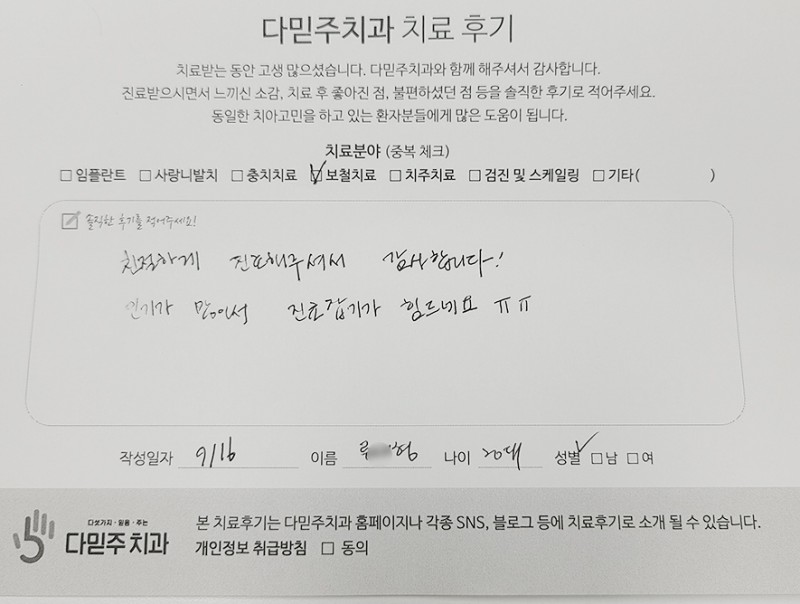 다믿주치과 치료 후기
치료받는 동안 고생 많으셨습니다. 다믿주치과와 함께 해주셔서 감사합니다.
진료받으시면서 느끼신 소감, 치료 후 좋아진 점, 불편하셨던 점 등을 솔직한 후기로 적어주세요.
동일한 치아고민을 하고 있는 환자분들에게 많은 도움이 됩니다.
치료분야 (중복 체크)
□ 임플란트 □ 사랑니발치 □ 충치치료 ☑ 보철치료 □ 치주치료 □ 검진 및 스케일링 □ 기타( )
솔직한 후기를 적어주세요!
친절하게 진료해주셔서 감사합니다!
인기가 많아서 진료잡기가 힘드네요 ㅠㅠ
작성일자 9/16 이름 나이 20대 성별 □ 남 □ 여
다섯가지·믿음·주는
다믿주치과
본 치료후기는 다믿주치과 홈페이지나 각종 SNS, 블로그 등에 치료후기로 소개 될 수 있습니다.
개인정보 취급방침 □ 동의